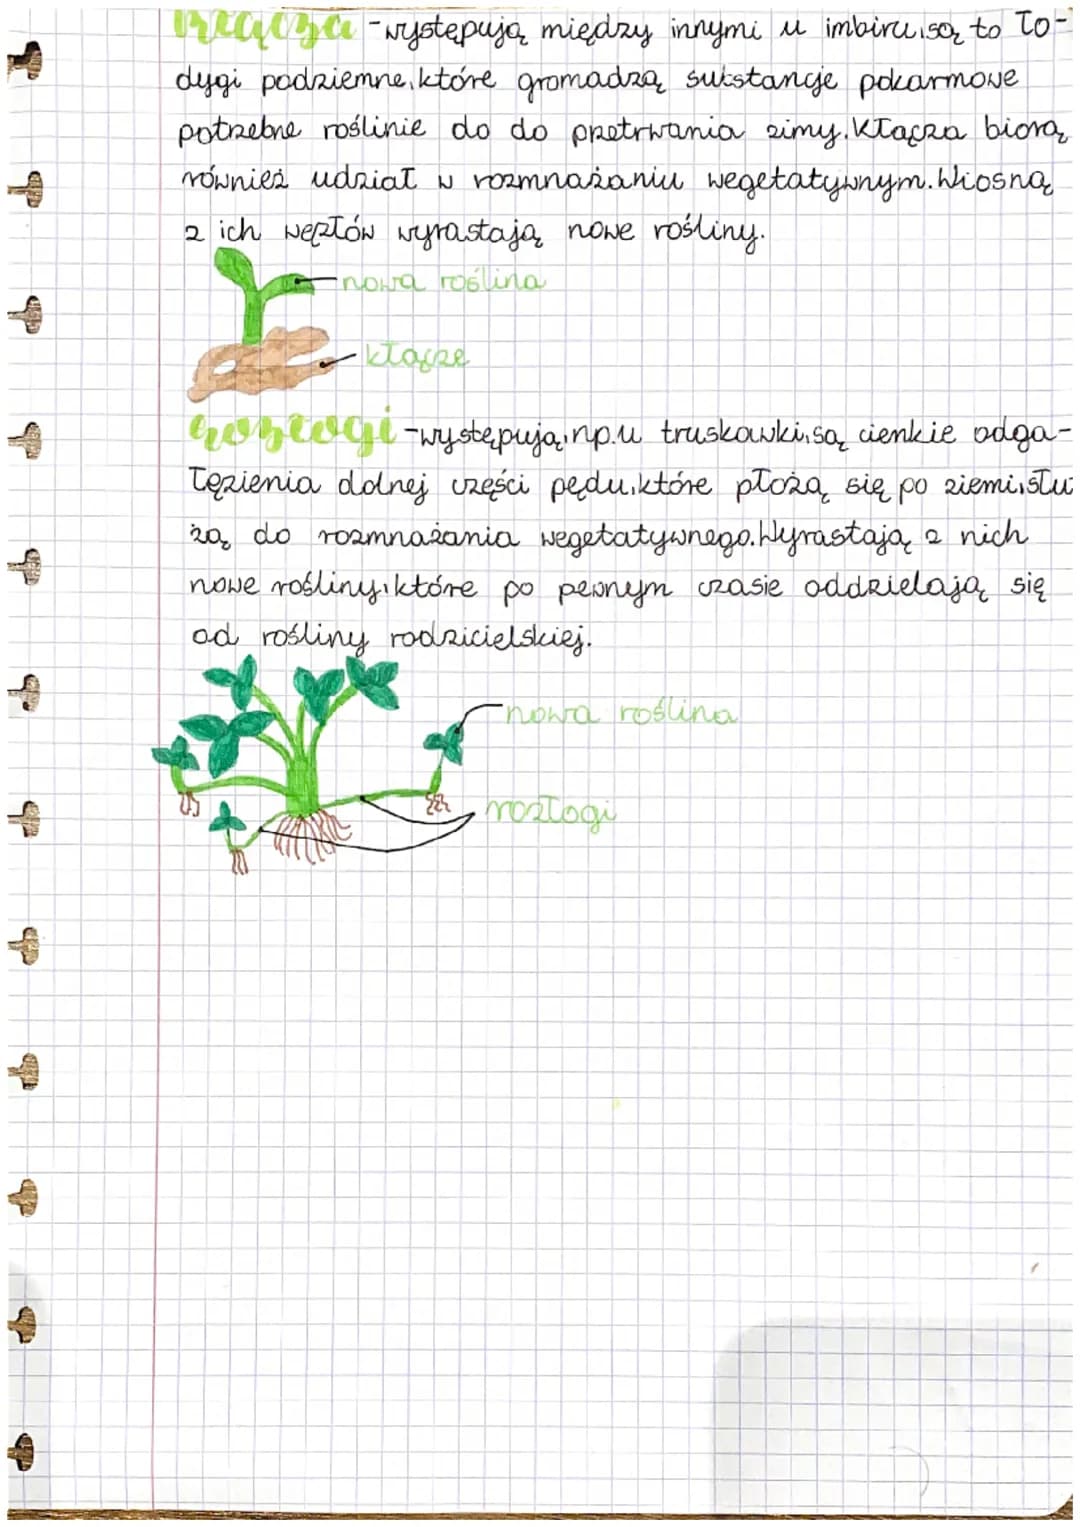 kłącza -występują między innymi u imbiru, są to ło-
dygi podziemne, które gromadzą substancje pokarmowe
potrzebne roślinie do do przetrwania zimy. Kłącza biorą
również udział w rozmnażaniu wegetatywnym. Wiosną
z ich węzłów wyrastają nowe rośliny.
nowa roślina
kłącze
rozłogi -występują, np. u truskawki, są cienkie odga-
łęzienia dolnej części pędu, które płożą się po ziemi, słu
żą do rozmnażania wegetatywnego. Wyrastają z nich
nowe rośliny, które po pewnym czasie oddzielają się
od rośliny rodzicielskiej.
nowa roślina
rozłogi